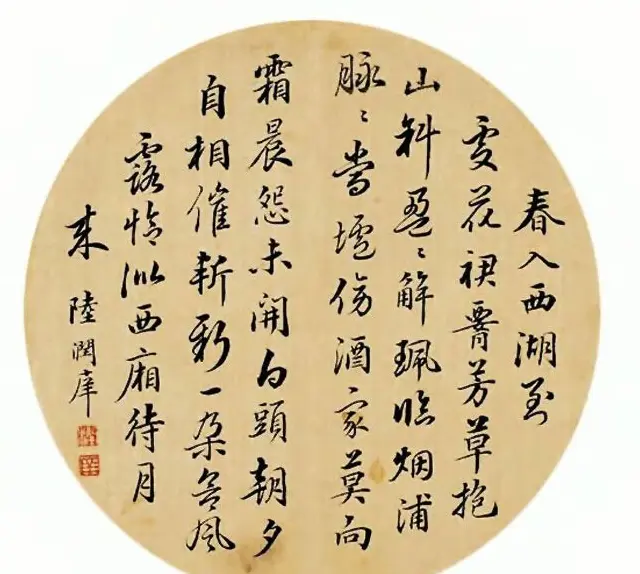 春入西湖到
處花裙腰芳草抱
山斜盈〻解珮臨烟浦
脉〻當壚傍酒家莫向
霜晨怨未開白頭朝夕
自相催斬新一朵含風
露恰似西廂待月
来 陸潤庠